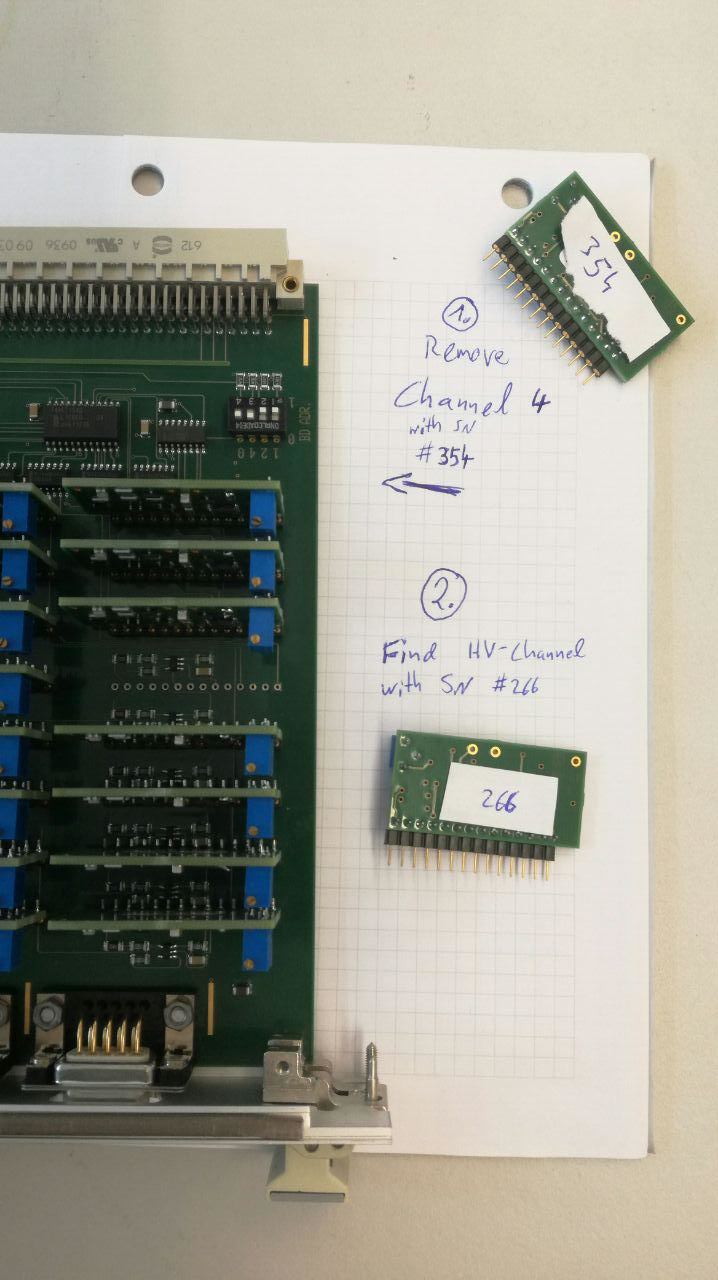 612 0936 09 03
354
1.
Remove
Channel 4
with SN
#354
BD ADR.
1 2 4 0
2.
Find HV-Channel
with SN #266
266